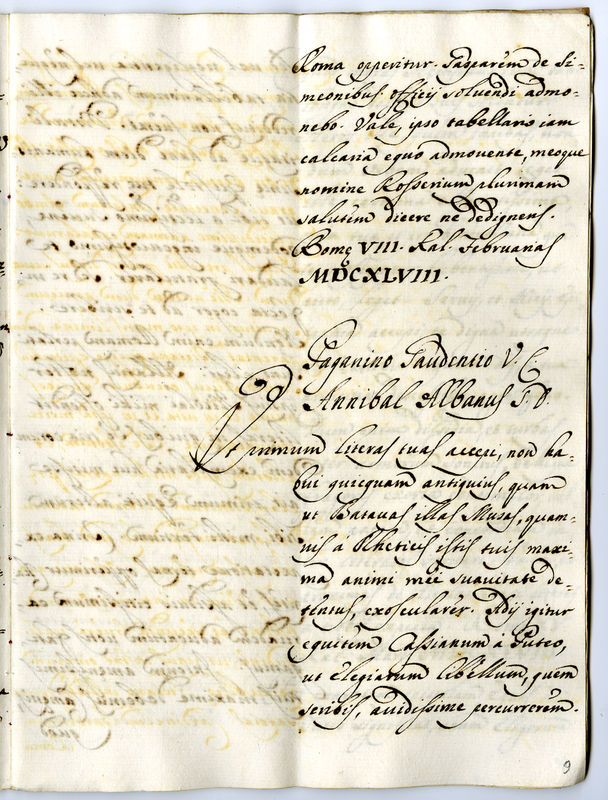 Roma opperitur. Gasparem de Si-
meonibus officij solvendi admo-
nebo. Vale, ipso tabellario iam
calcaria equo admovente, meoque
nomine Rosserium plurimam
salutem dicere ne dedigneris.
Romę VIII. Kal. Februarias
MDCXLVIII.
Paganino Gaudentio V. C.
Annibal Albanus S. D.
Ut primum literas tuas accepi, non ha-
bui quicquam antiquius, quam
ut Batavas illas Musas, quam-
vis á Rheticis istis tuis maxi-
ma animi mei suavitate de-
tentus, exoscularer. Adij igitur
equitem Cassianum á Puteo,
ut Elegiarum libellum, quem
scribis, avidissime percurrerem.
9